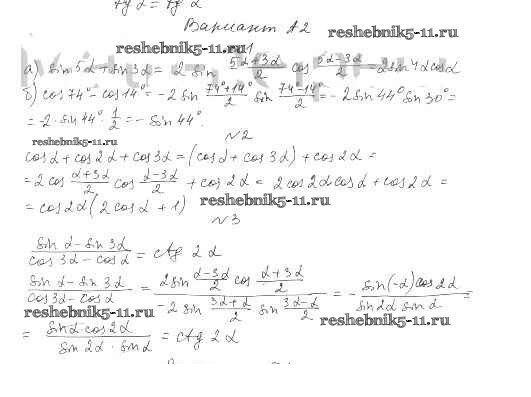 tg 2 = tg 2
Вариант А2
reshebnik5-11.ru
№1
а) sin 5α + sin 3α = 2 sin (5α+3α)/2 cos (5α-3α)/2 = 2 sin 4α cos α
б) cos 74° - cos 14° = -2 sin (74°+14°)/2 sin (74°-14°)/2 = -2 sin 44° sin 30° =
= -2 · sin 44° · 1/2 = - sin 44°.
reshebnik5-11.ru
№2
cos α + cos 2α + cos 3α = (cos α + cos 3α) + cos 2α =
= 2 cos (α+3α)/2 cos (α-3α)/2 + cos 2α = 2 cos 2α cos α + cos 2α =
= cos 2α (2 cos α + 1)
reshebnik5-11.ru
№3
(sin α - sin 3α)/(cos 3α - cos α) = ctg 2α
(sin α - sin 3α)/(cos 3α - cos α) = (2 sin (α-3α)/2 cos (α+3α)/2)/(-2 sin (3α+α)/2 sin (3α-α)/2) = - (sin(-α) cos 2α)/(sin 2α sin α) =
reshebnik5-11.ru
reshebnik5-11.ru
= (sin α · cos 2α)/(sin 2α · sin α) = ctg 2α